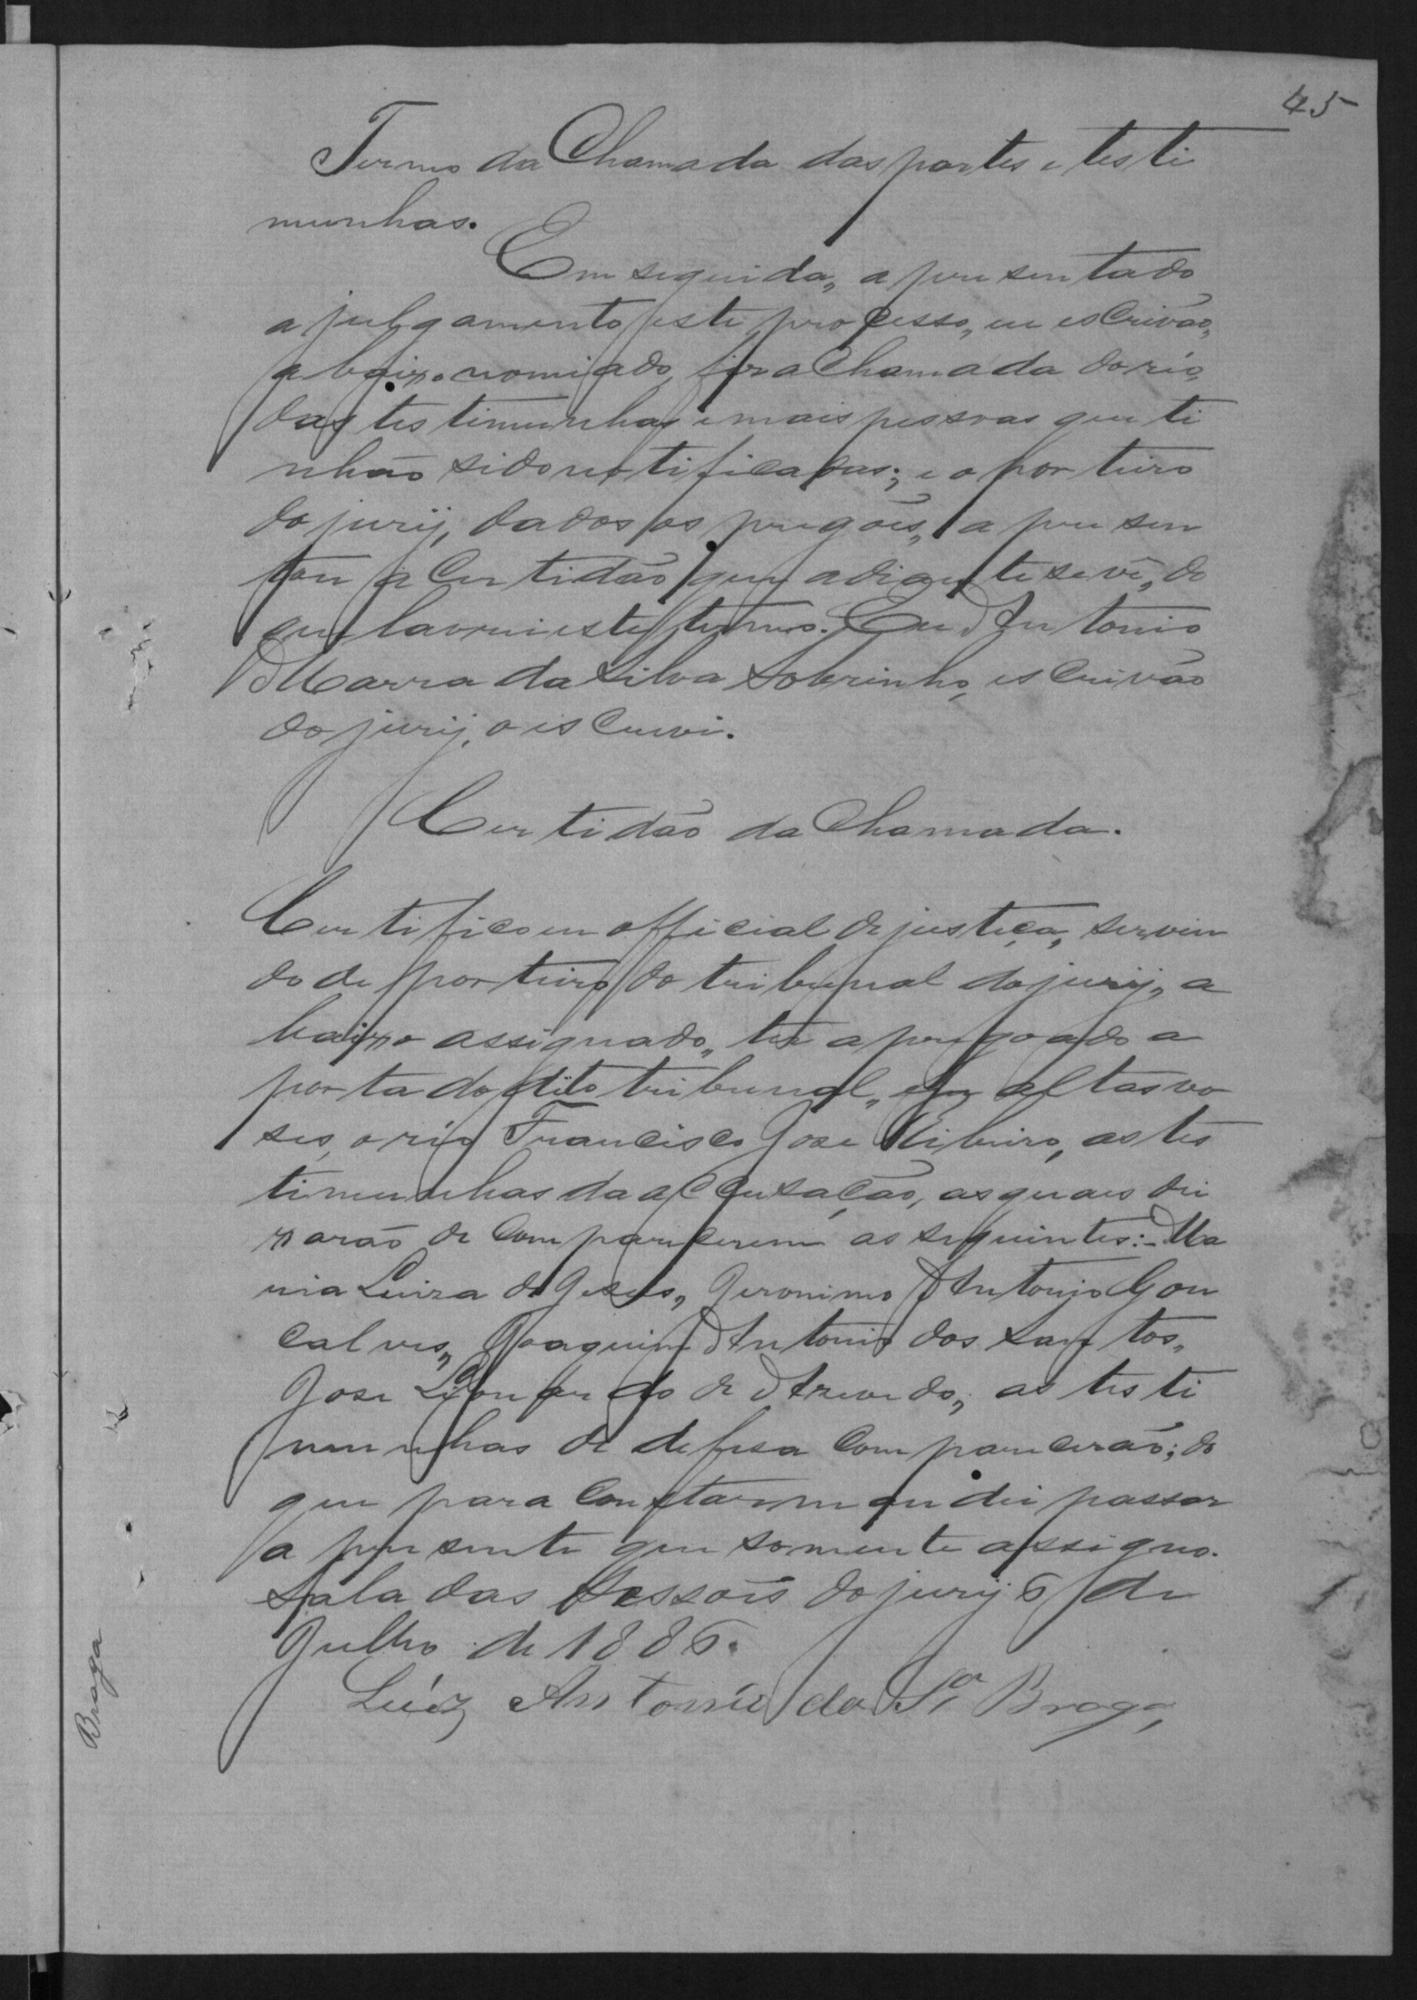 45
Termo da Chamada das partes e teste
munhas.
Em seguida, apresentado
a julgamento este processo, eu escrivão,
abaixo nomiado, fiz a Chamada do réo,
das testimunhas e mais pessoas que ti
nhão sido notificadas; e o porteiro
do jury, dados os pregões, apresen
tou a Certidão que adiante se vê, do
que lavrei este termo. Eu Antonio
Marra da Silva Sobrinho, escrivão
do jury, o escrevi.
Certidão da Chamada.
Certifico eu official de justiça, servin
do de porteiro do tribunal do jury, a
baixo assignado, ter apregoado a
porta do dito tribunal, em altas vo
ses, o réo Francisco José Ribeiro, as tes
timunhas da accusação, as quaes dei
xarão de comparecerem as seguintes:- Ma
ria Luiza de Jesus, Jeronimo Antonio Gon
calves, Joaquim Antonio dos Santos,
José Leonardo de Azevedo, as teste
munhas de defesa comparecerão; do
que para constar mandei passar
a presente que somente assigno.
Sala das Sessões do jury 6 de
Julho de 1886.
Luiz Antonio da Sª Braga
Braga